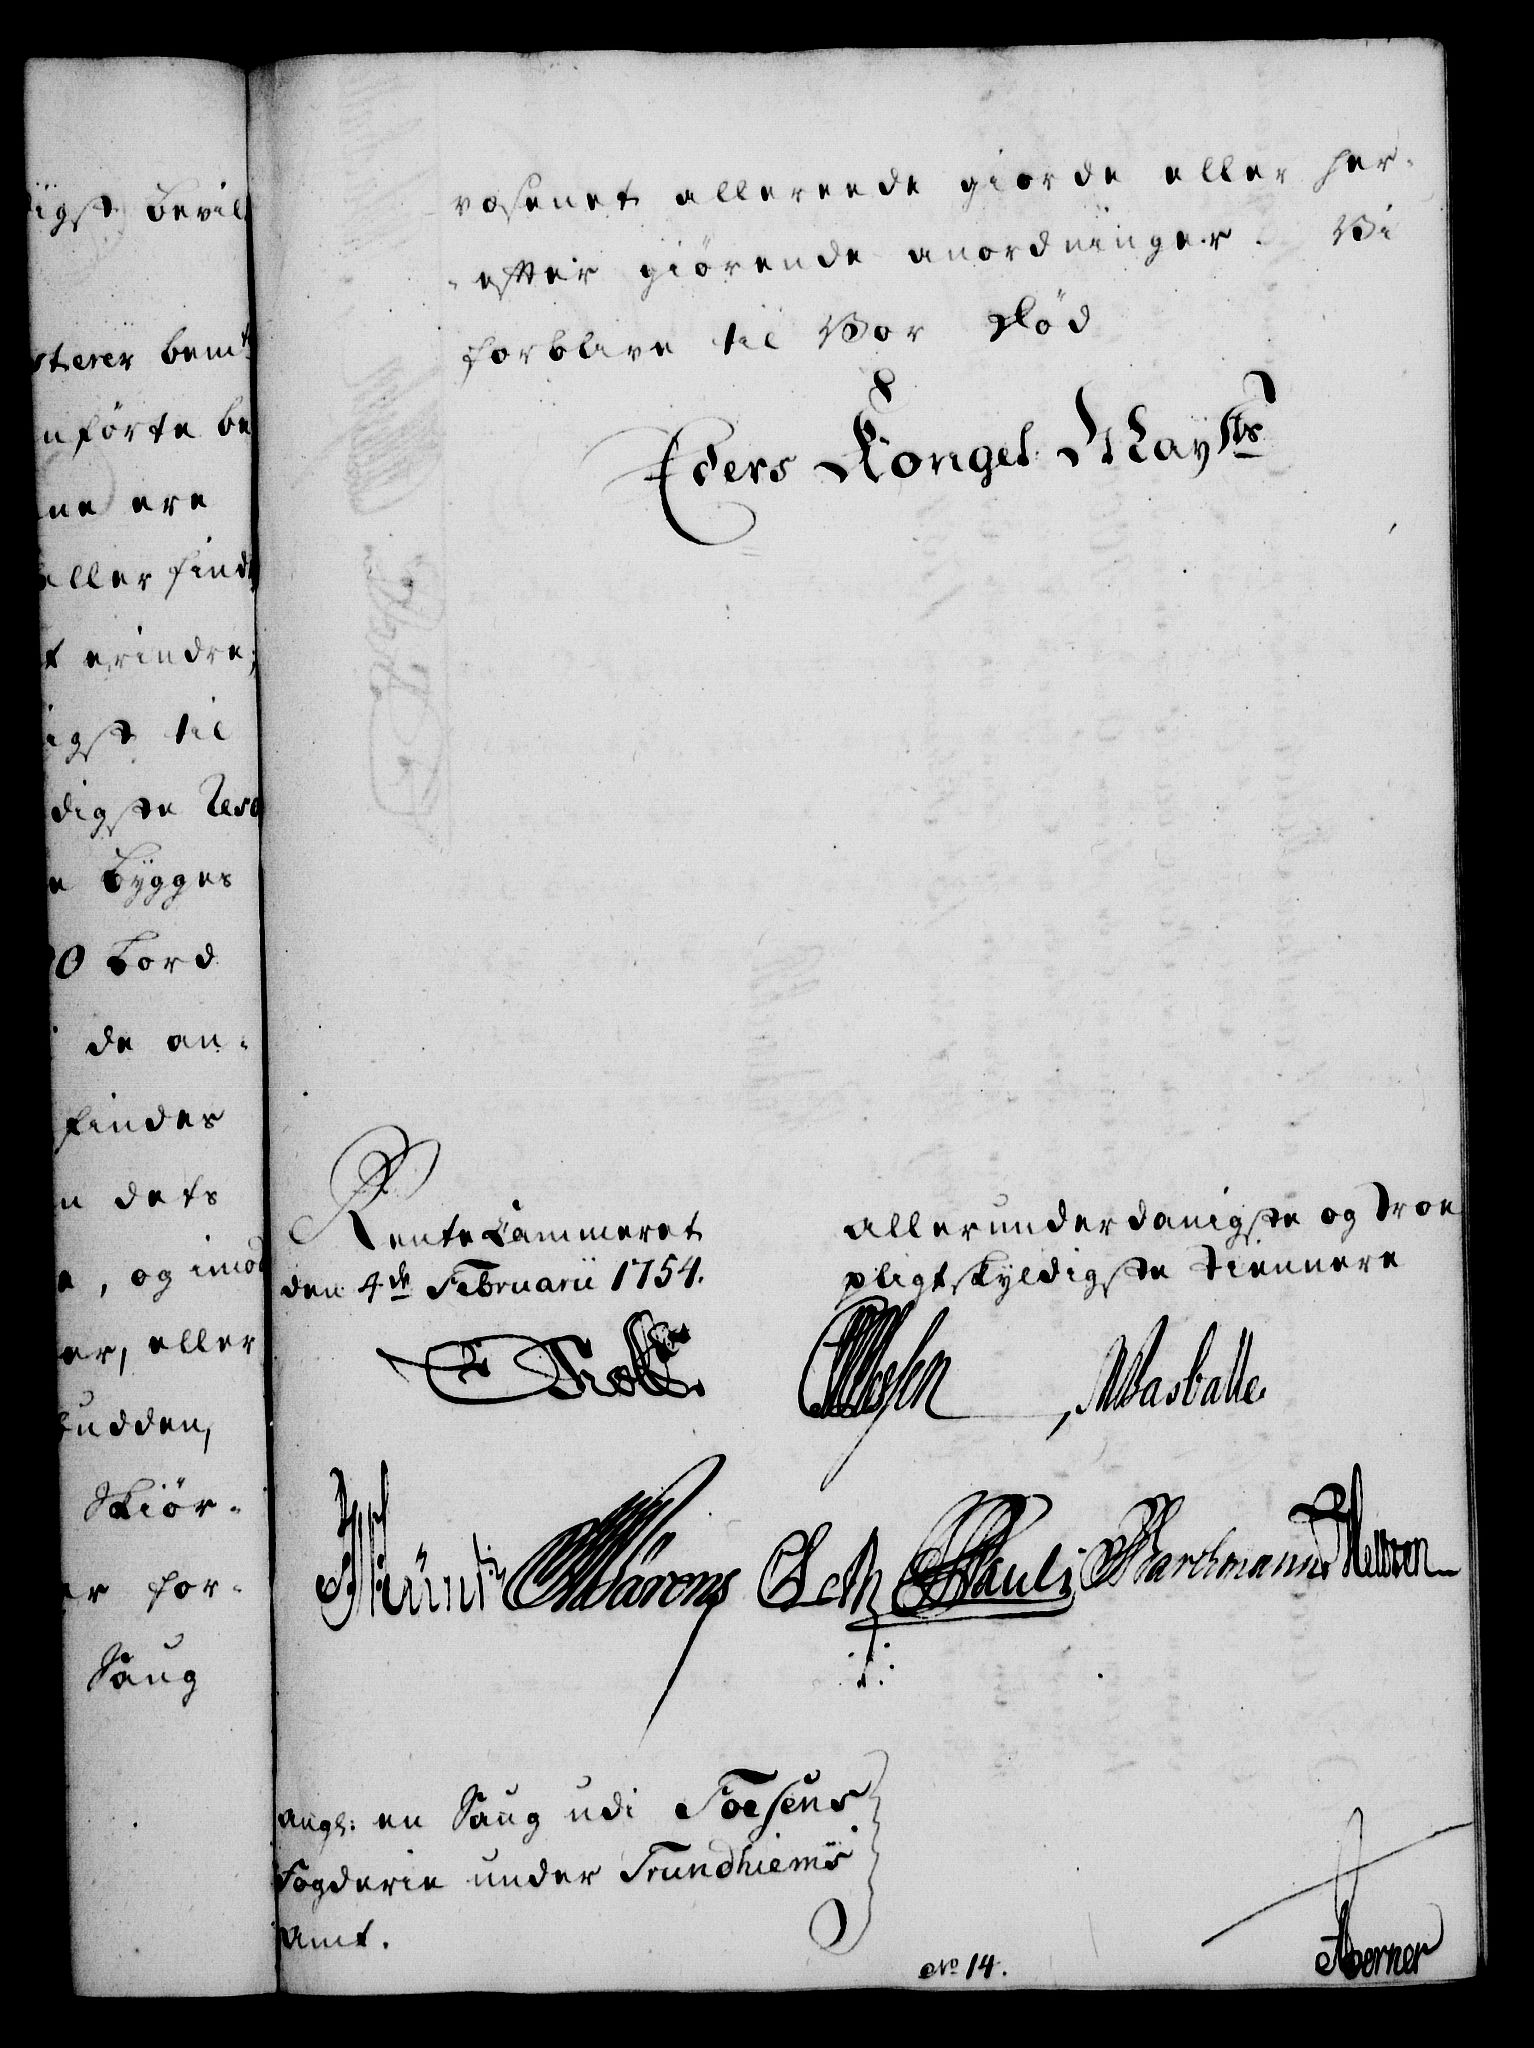 igst bevil
sterer bemte
nförte be
ne ere
eller find
t erindre;
igst til
digste Reso
e bygges
0 bord
de an-
findes
n dets
e, og imod
er, eller
budden,
Skiør-
er for-
Saug
væsenet allereede giorde eller her-
-efter giørende anordninger. Vi
forblive til Vor Død
Eders Kongel. Maysts
Rente Cammeret
den 4de Februarii 1754.
allerunderdanigste og troe
pligtskyldigste Tiennere
Holst.
Wasballe.
Pauli
Barchmann
angl: en Saug udi Foesens
Fogderie under Trundhiems
Amt.
No 14.
Berner